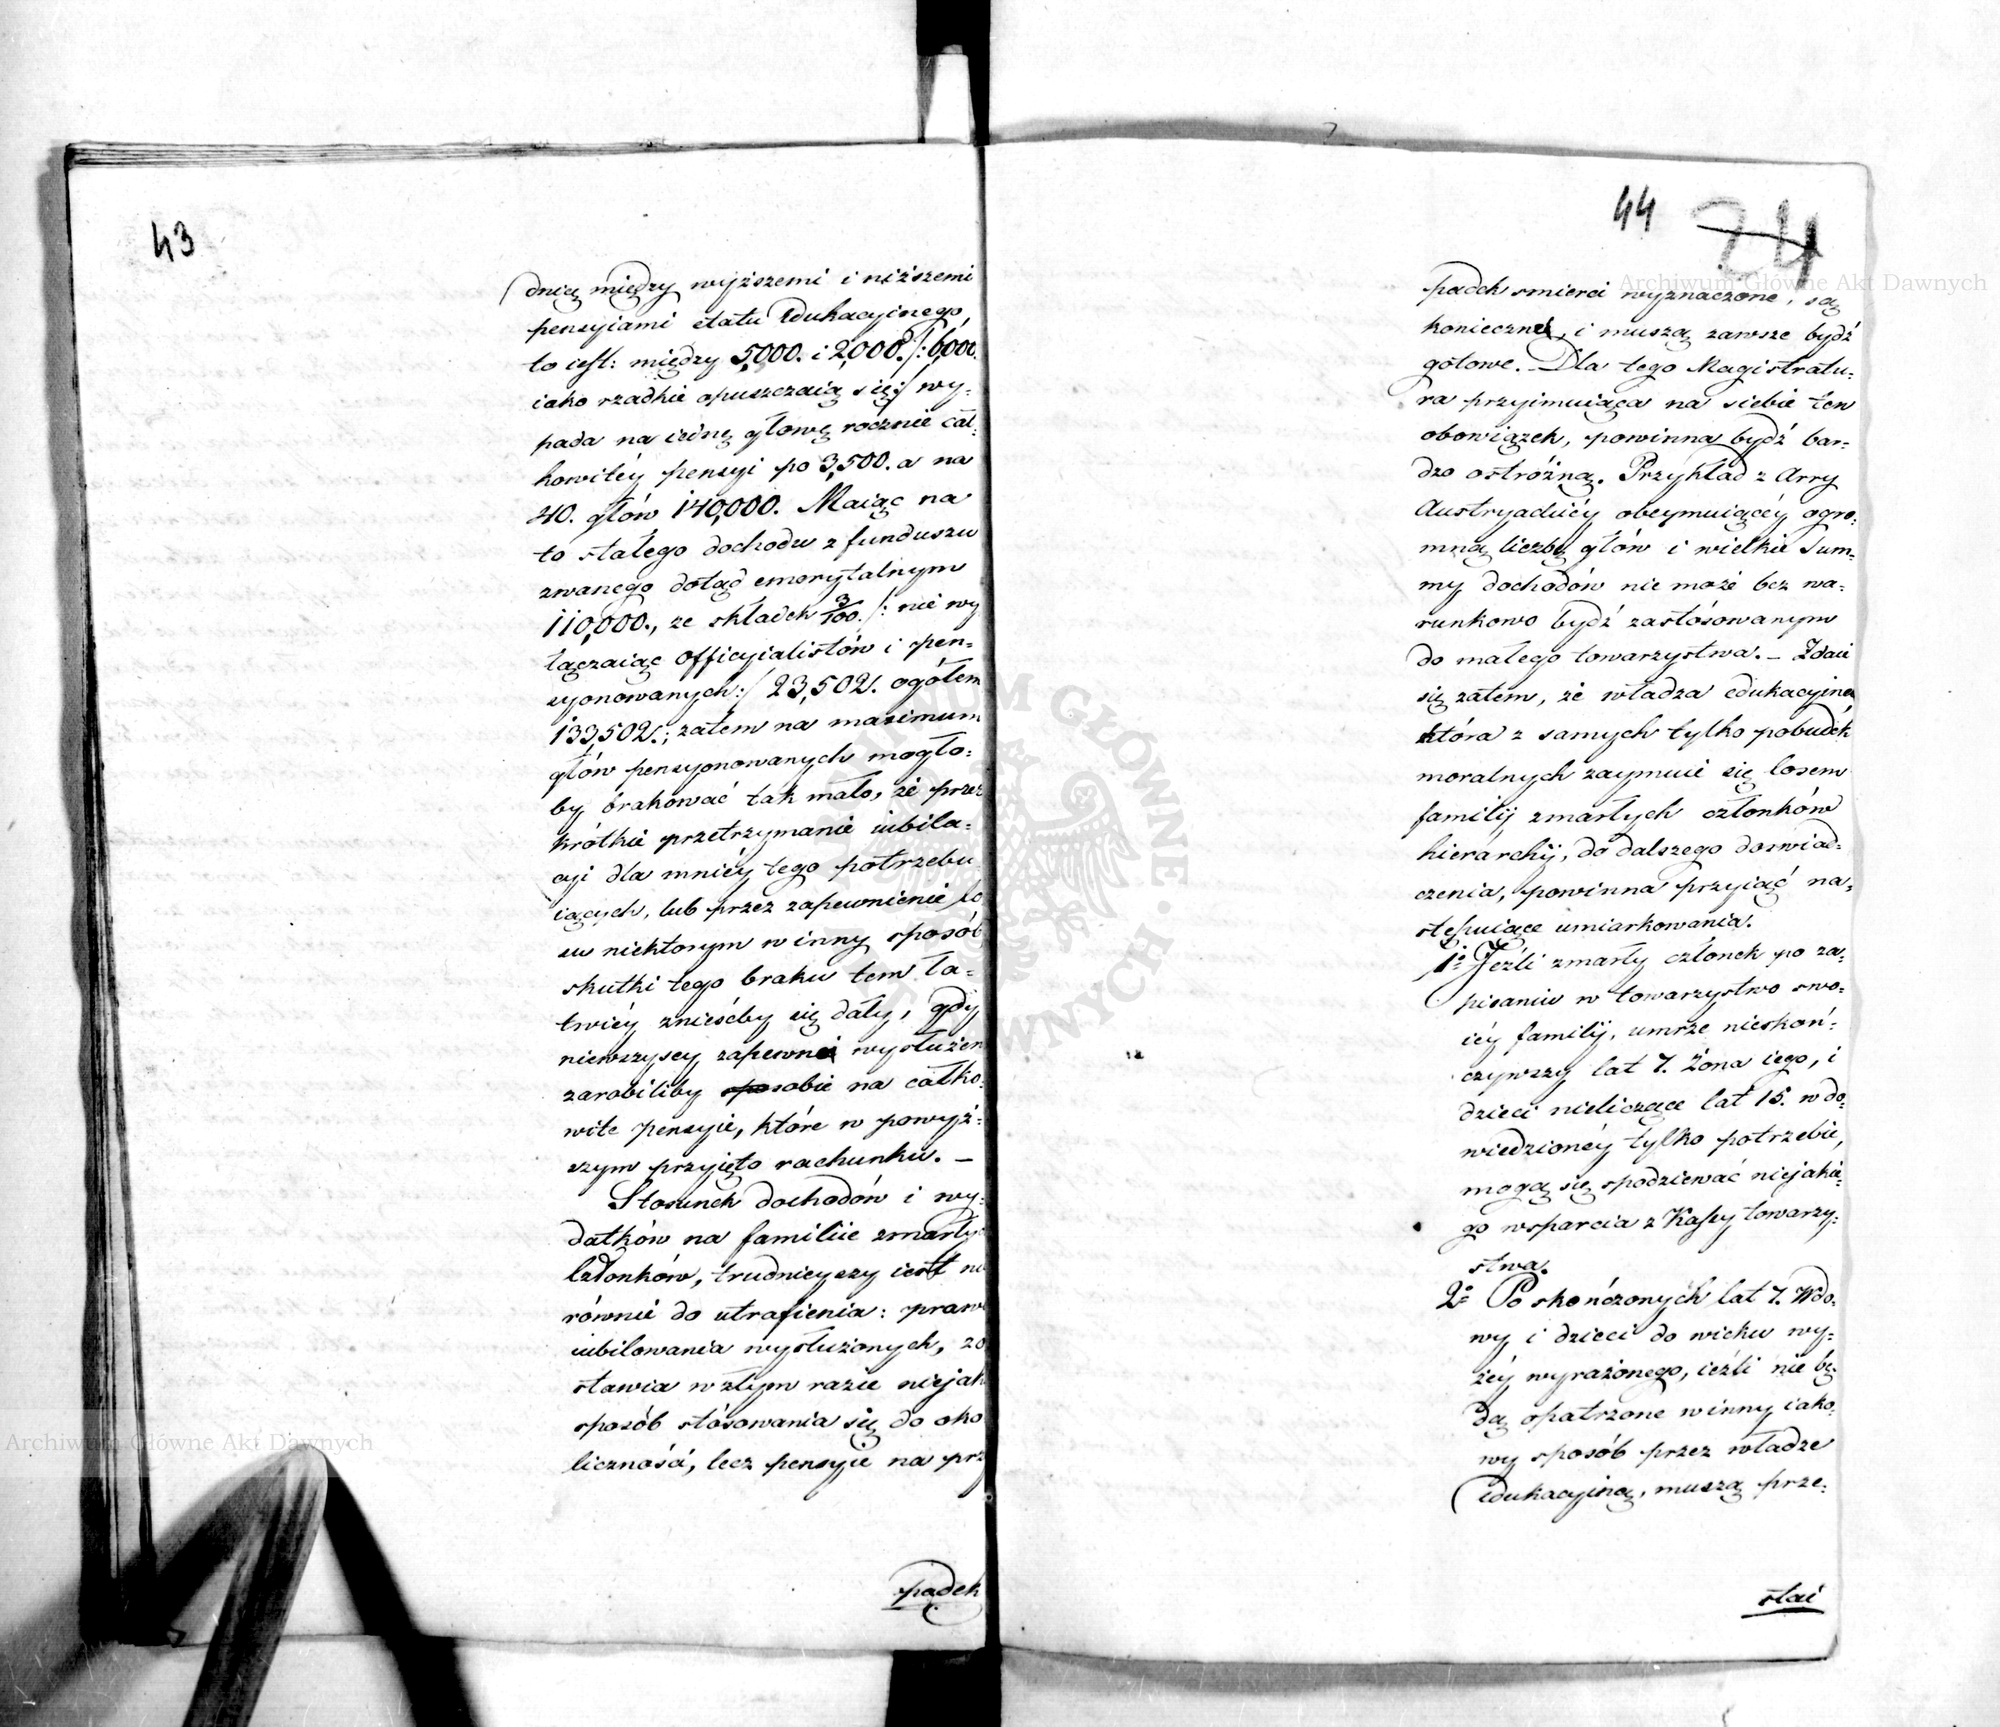 43
dnią między wyższemi i niższemi
pensyiami etatu Edukacyinego,
to iest: między 5,000. i 2,000. /: 6,000.
iako rzadkie opuszczaią się :/ wy-
pada na iednę głowę rocznie cał-
kowitéy pensyi po 3,500. a na
40. głów 140,000. Maiąc na
to stałego dochodu z funduszu
zwanego dotąd emerytalnym
110,000., ze składek 3/100. /: nie wy
łączaiąc officyialistów i pen-
syonowanych :/ 23,502. ogółem
133,502.; zatem na maximum
głów pensyonowanych mogło-
by brakować tak mało, że przez
krótkie przetrzymanie iubila-
cyi dla mniéy tego potrzebu
iących, lub przez zapewnienie lo
su niektorym w inny sposób
skutki tego braku tem ła-
twiéy znieśćby się dały, gdy
niewszyscy zapewne wysłużen
zarobiliby sobie na całko-
wite pensyie, które w powyż-
szym przyięto rachunku. —
Stosunek dochodów i wy-
datków na familiie zmarły
Członków, trudnieyszy iest nie
równie do utrafienia: praw
iubilowania wysłużonych, zo
stawia w złym razie nieiak
sposób stósowania się do oko
liczności, lecz pensyie na prz
padek
44
24
padek smierci wyznaczone, są
konieczne, i muszą zawsze bydź
gotowe. Dla tego Magistratu-
ra przyimuiąca na siebie ten
obowiązek, powinna bydź bar-
dzo ostróżną. Przykład z Arry
Austryackiéy obeymuiącéy ogro-
mną liczbę głów i wielkie Sum-
my dochodów nie może bez wa-
runkowo bydź zastósowanym
do małego towarzystwa. — Zdaie
się zatem, że władza edukacyina
która z samych tylko pobudek
moralnych zaymuie się losem
familij zmarłych członków
hierarchij, do dalszego doswiad-
czenia, powinna przyiąć na-
stępuiące umiarkowania.
1o Jeźli zmarły członek po za-
pisaniu w towarzystwo swo-
iéy familij, umrze nieskoń-
czywszy lat 7. Żona iego, i
dzieci nieliczące lat 15. w do-
wiedzionéy tylko potrzebie,
mogą się spodziewać niejakie-
go wsparcia z Kassy towarzy-
stwa.
2o Po skończonych lat 7. Wdo-
wy i dzieci do wieku wy-
żéy wyrażonego, ieźli nie bę
dą opatrzone w inny iako-
wy sposób przez władze
edukacyiną, muszą prze-
stać
Archiwum Główne Akt Dawnych
Archiwum Główne Akt Dawnych